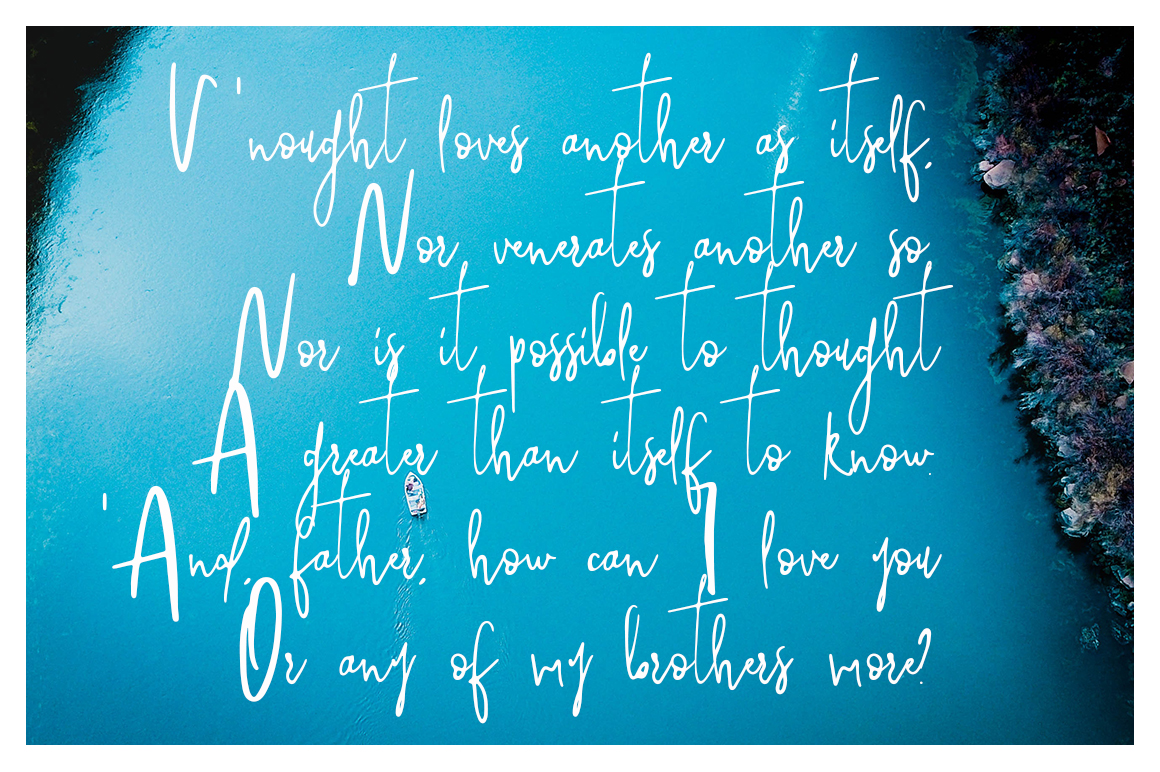 V 'nought loves another as itself,
Nor venerates another so,
Nor is it possible to thought
A greater than itself to know.
'And, father, how can I love you
Or any of my brothers more?